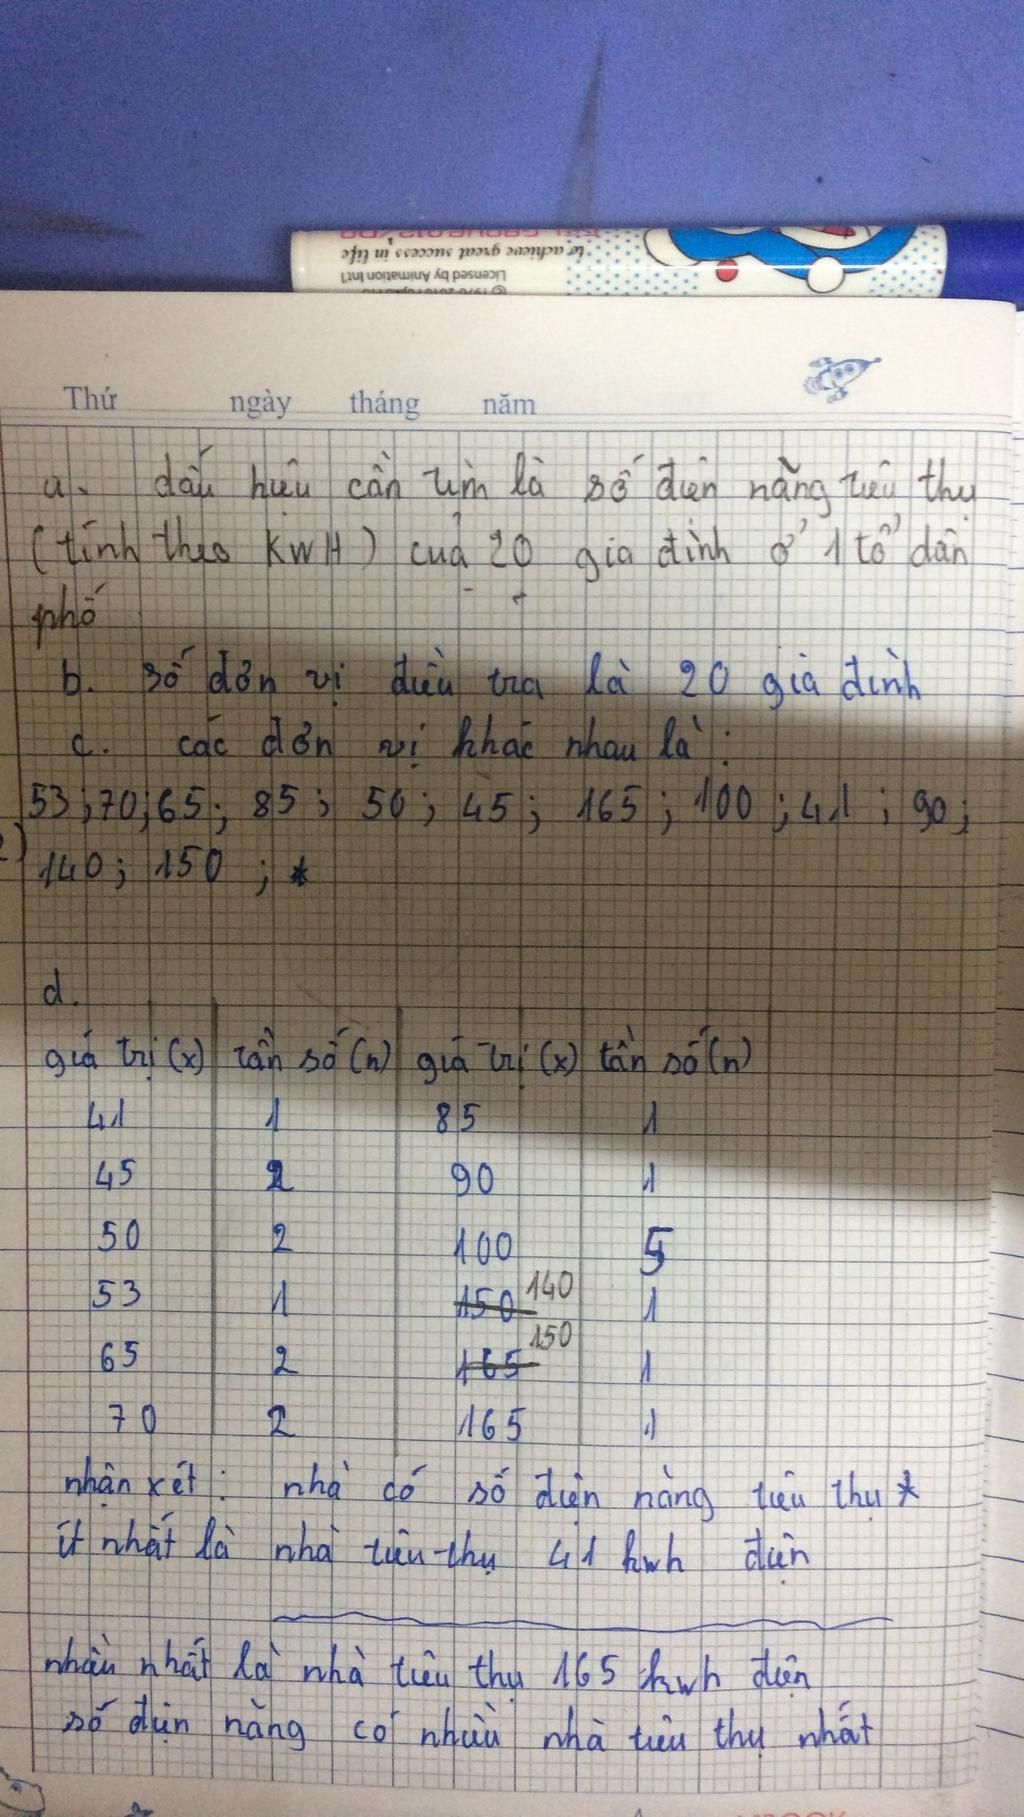 to achieve great success in life
Licensed by Animation Int'l
Thứ ngày tháng năm
a. dấu hiệu cần tìm là số điện năng tiêu thụ
(tính theo KWH) của 20 gia đình ở 1 tổ dân
phố
b. số đơn vị điều tra là 20 gia đình
c. các đơn vị khác nhau là :
53 ; 70 ; 65 ; 85 ; 50 ; 45 ; 165 ; 100 ; 41 ; 90 ;
140 ; 150 ; *
d.
giá trị (x) tần số (n) giá trị (x) tần số (n)
41 1 85 1
45 2 90 1
50 2 100 5
53 1 150 140 1
65 2 165 150 1
70 2 165 1
nhận xét : nhà có số điện năng tiêu thụ *
ít nhất là nhà tiêu thụ 41 kwh điện
nhiều nhất là nhà tiêu thụ 165 kwh điện
số điện năng có nhiều nhà tiêu thụ nhất